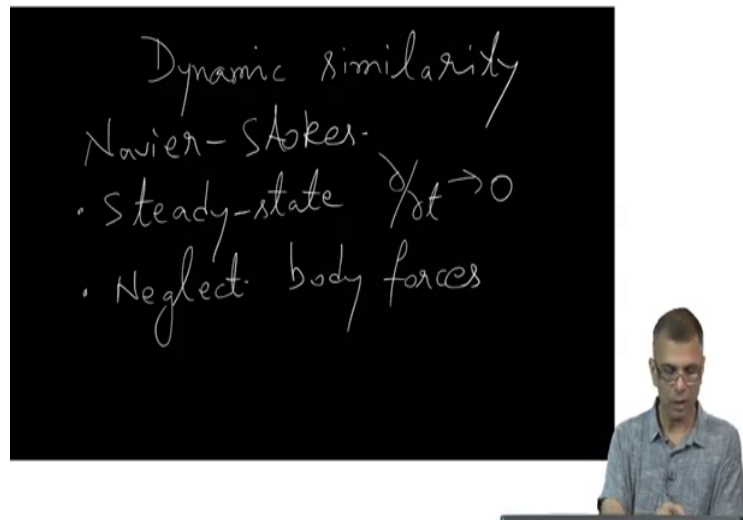 Dynamic similarity
Navier-Stokes.
. Steady-state ∂/∂t → 0
. Neglect. body forces